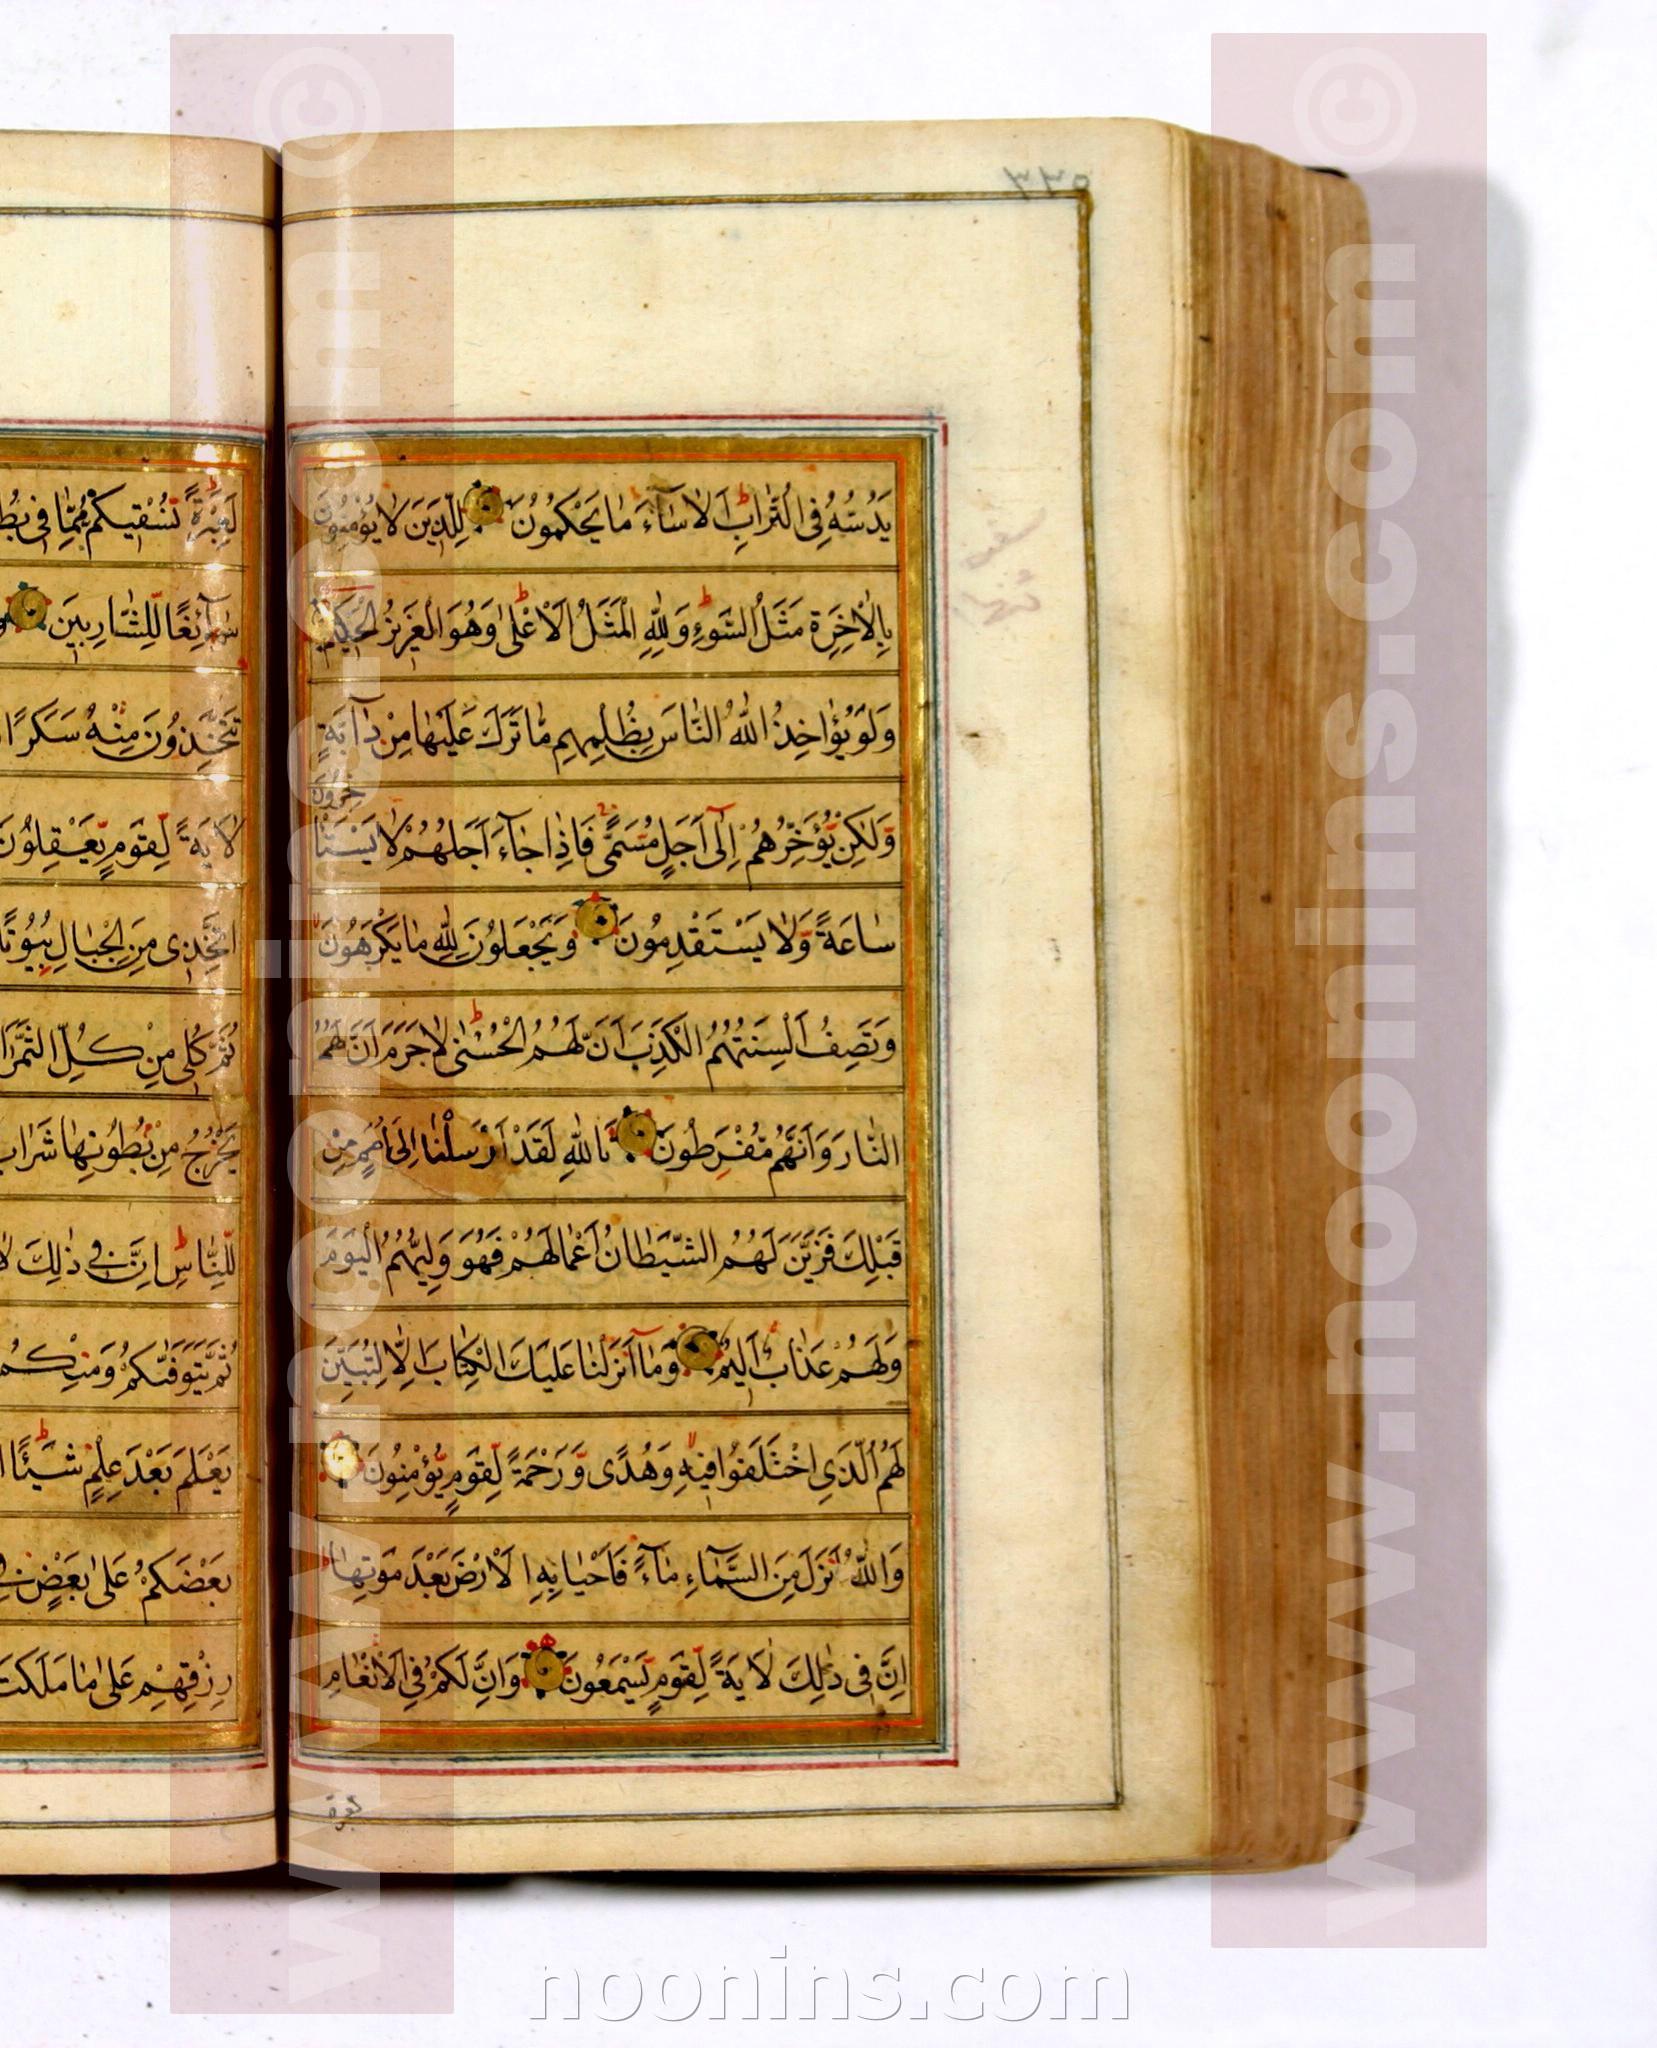 ٣٣٥
يَدُسُّهُ فِى التُّرَابِ اَلَا سَآءَ مَا يَحْكُمُونَ لِلَّذِينَ لَا يُؤْمِنُونَ
بِالْاٰخِرَةِ مَثَلُ السَّوْءِ وَلِلّٰهِ الْمَثَلُ الْاَعْلٰى وَهُوَ الْعَزِيزُ الْحَكِيمُ
وَلَوْ يُؤَاخِذُ اللّٰهُ النَّاسَ بِظُلْمِهِمْ مَا تَرَكَ عَلَيْهَا مِنْ دَآبَّةٍ
وَلٰكِنْ يُؤَخِّرُهُمْ اِلٰٓى اَجَلٍ مُسَمًّى فَاِذَا جَآءَ اَجَلُهُمْ لَا يَسْتَاْخِرُونَ
سَاعَةً وَلَا يَسْتَقْدِمُونَ وَيَجْعَلُونَ لِلّٰهِ مَا يَكْرَهُونَ
وَتَصِفُ اَلْسِنَتُهُمُ الْكَذِبَ اَنَّ لَهُمُ الْحُسْنٰى لَا جَرَمَ اَنَّ لَهُمُ
النَّارَ وَاَنَّهُمْ مُفْرَطُونَ تَاللّٰهِ لَقَدْ اَرْسَلْنَا اِلٰٓى اُمَمٍ مِنْ
قَبْلِكَ فَزَيَّنَ لَهُمُ الشَّيْطَانُ اَعْمَالَهُمْ فَهُوَ وَلِيُّهُمُ الْيَوْمَ
وَلَهُمْ عَذَابٌ اَلِيمٌ وَمَآ اَنْزَلْنَا عَلَيْكَ الْكِتَابَ اِلَّا لِتُبَيِّنَ
لَهُمُ الَّذِى اخْتَلَفُوا فِيهِ وَهُدًى وَرَحْمَةً لِقَوْمٍ يُؤْمِنُونَ
وَاللّٰهُ اَنْزَلَ مِنَ السَّمَآءِ مَآءً فَاَحْيَا بِهِ الْاَرْضَ بَعْدَ مَوْتِهَا
اِنَّ فِى ذٰلِكَ لَاٰيَةً لِقَوْمٍ يَسْمَعُونَ وَاِنَّ لَكُمْ فِى الْاَنْعَامِ
لَعِبْرَةً نُسْقِيكُمْ مِمَّا فِى
سَآئِغًا لِلشَّارِبِينَ
تَتَّخِذُونَ مِنْهُ سَكَرًا
لَاٰيَةً لِقَوْمٍ يَعْقِلُونَ
اتَّخِذِى مِنَ الْجِبَالِ بُيُوتًا
ثُمَّ كُلِى مِنْ كُلِّ
يَخْرُجُ مِنْ بُطُونِهَا شَرَابٌ
لِلنَّاسِ اِنَّ فِى ذٰلِكَ
ثُمَّ يَتَوَفّٰيكُمْ وَمِنْكُمْ
يَعْلَمَ بَعْدَ عِلْمٍ شَيْئًا
بَعْضَكُمْ عَلٰى بَعْضٍ
رِزْقِهِمْ عَلٰى مَا مَلَكَتْ
لعبرة
www.noonins.com ©
www.noonins.com ©
noonins.com